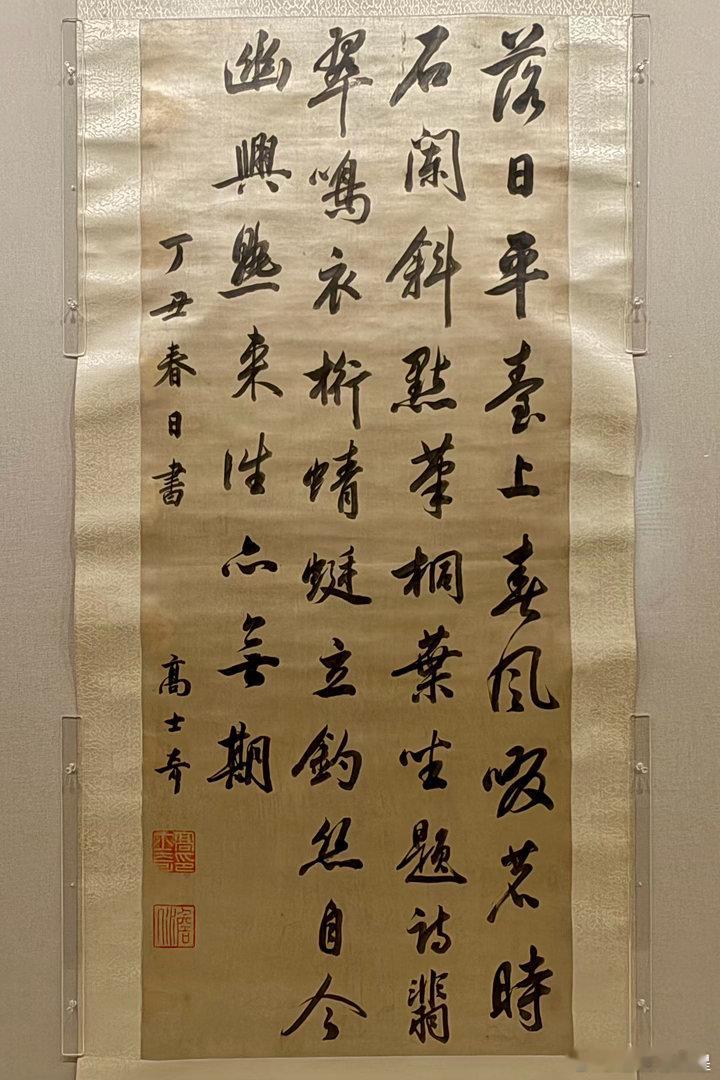 落日平臺上春風啜茗時
石闌斜點筆桐葉坐題詩翡
翠鳴衣桁蜻蜓立釣絲自今
幽興熟來往亦無期
丁丑春日書 高士奇
澹人